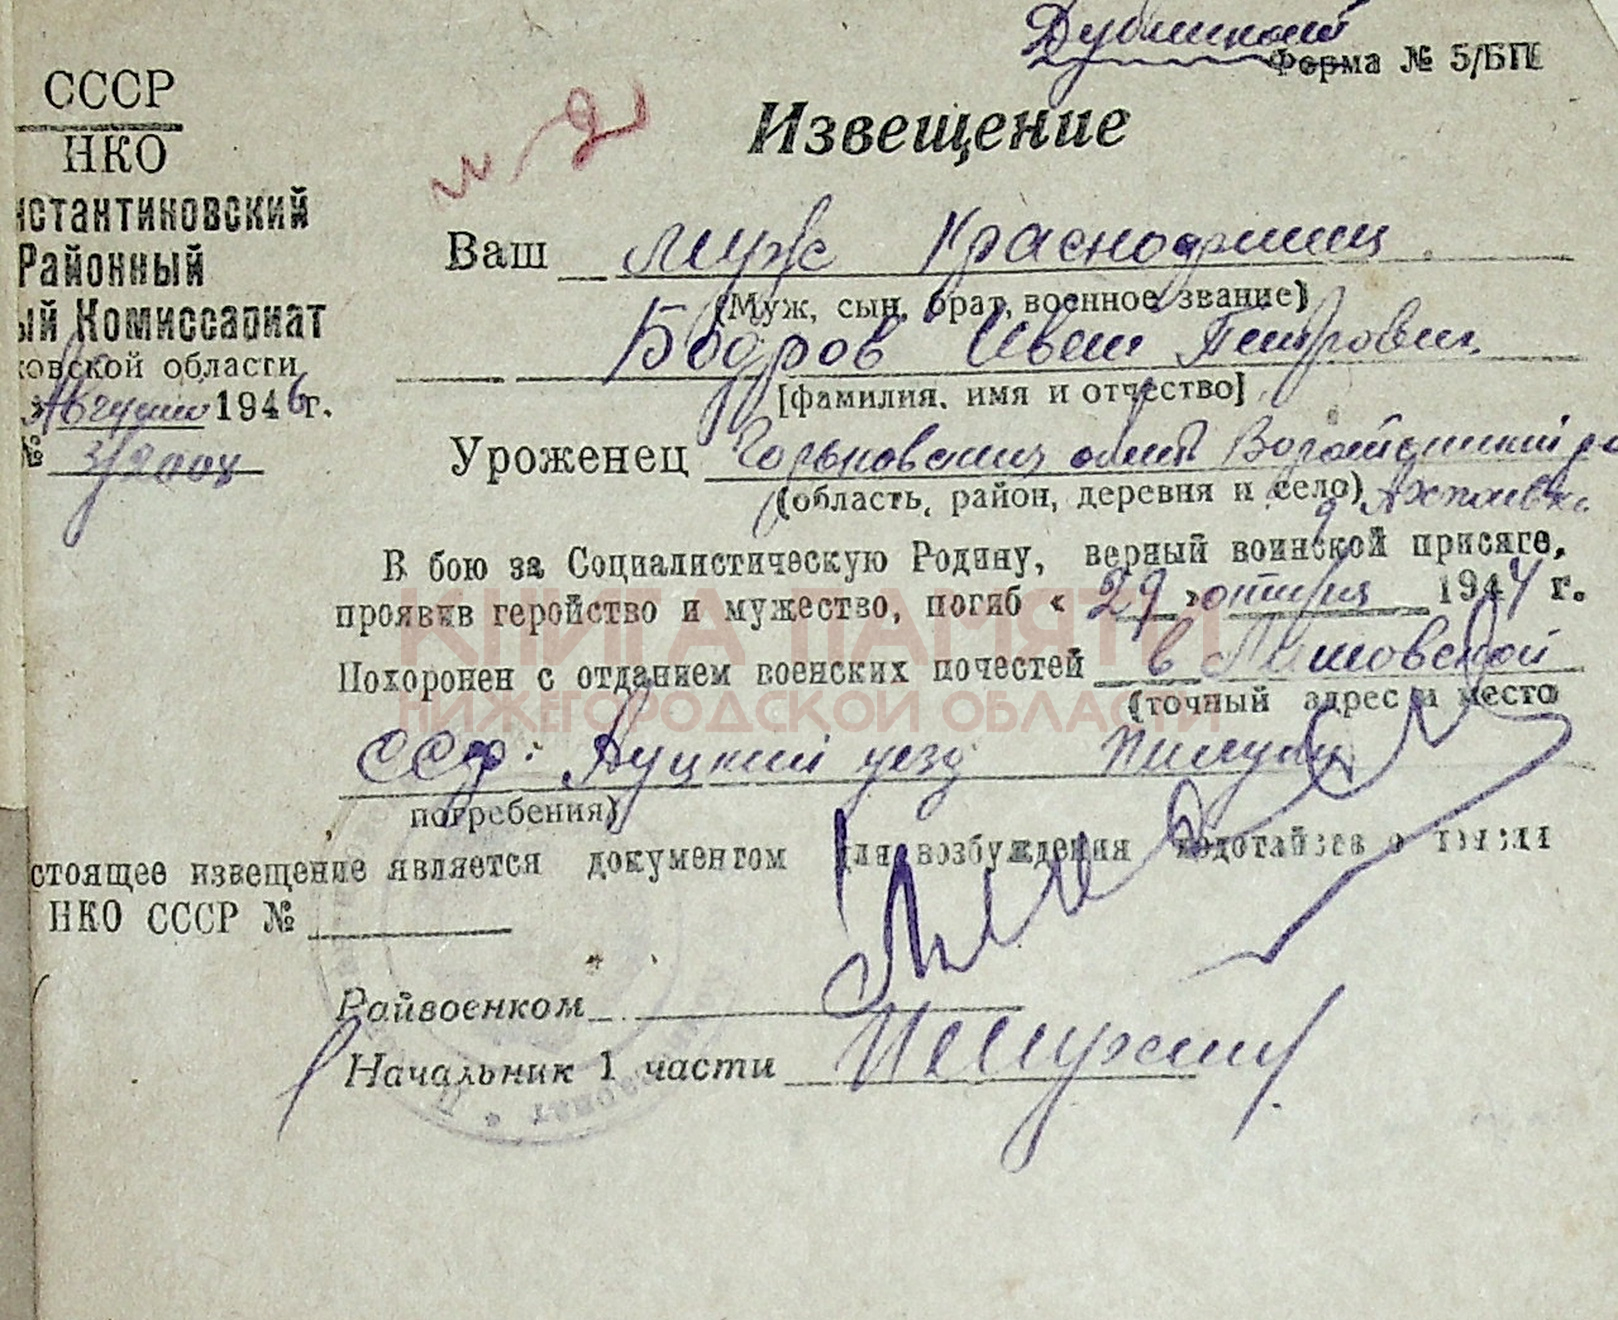 Дубликат
Форма № 5/БП
СССР
НКО
нстантиновский
Районный
ый Комиссариат
ковской области
Августа 1946 г.
№
Извещение
Ваш муж Красноармеец
(Муж, сын, брат, военное звание)
Бобров Иван Петрович
[фамилия, имя и отчество]
Уроженец Горьковская область
(область, район, деревня и село)
В бою за Социалистическую Родину, верный воинской присяге,
проявив геройство и мужество, погиб « 29 » октября 1944 г.
Похоронен с отданием военских почестей в
(точный адрес и место
ССР уезд
погребения)
стоящее извещение является документом для возбуждения ходотайсва о
НКО СССР №
Райвоенком
Начальник 1 части
КНИГА ПАМЯТИ
НИЖЕГОРОДСКОЙ ОБЛАСТИ